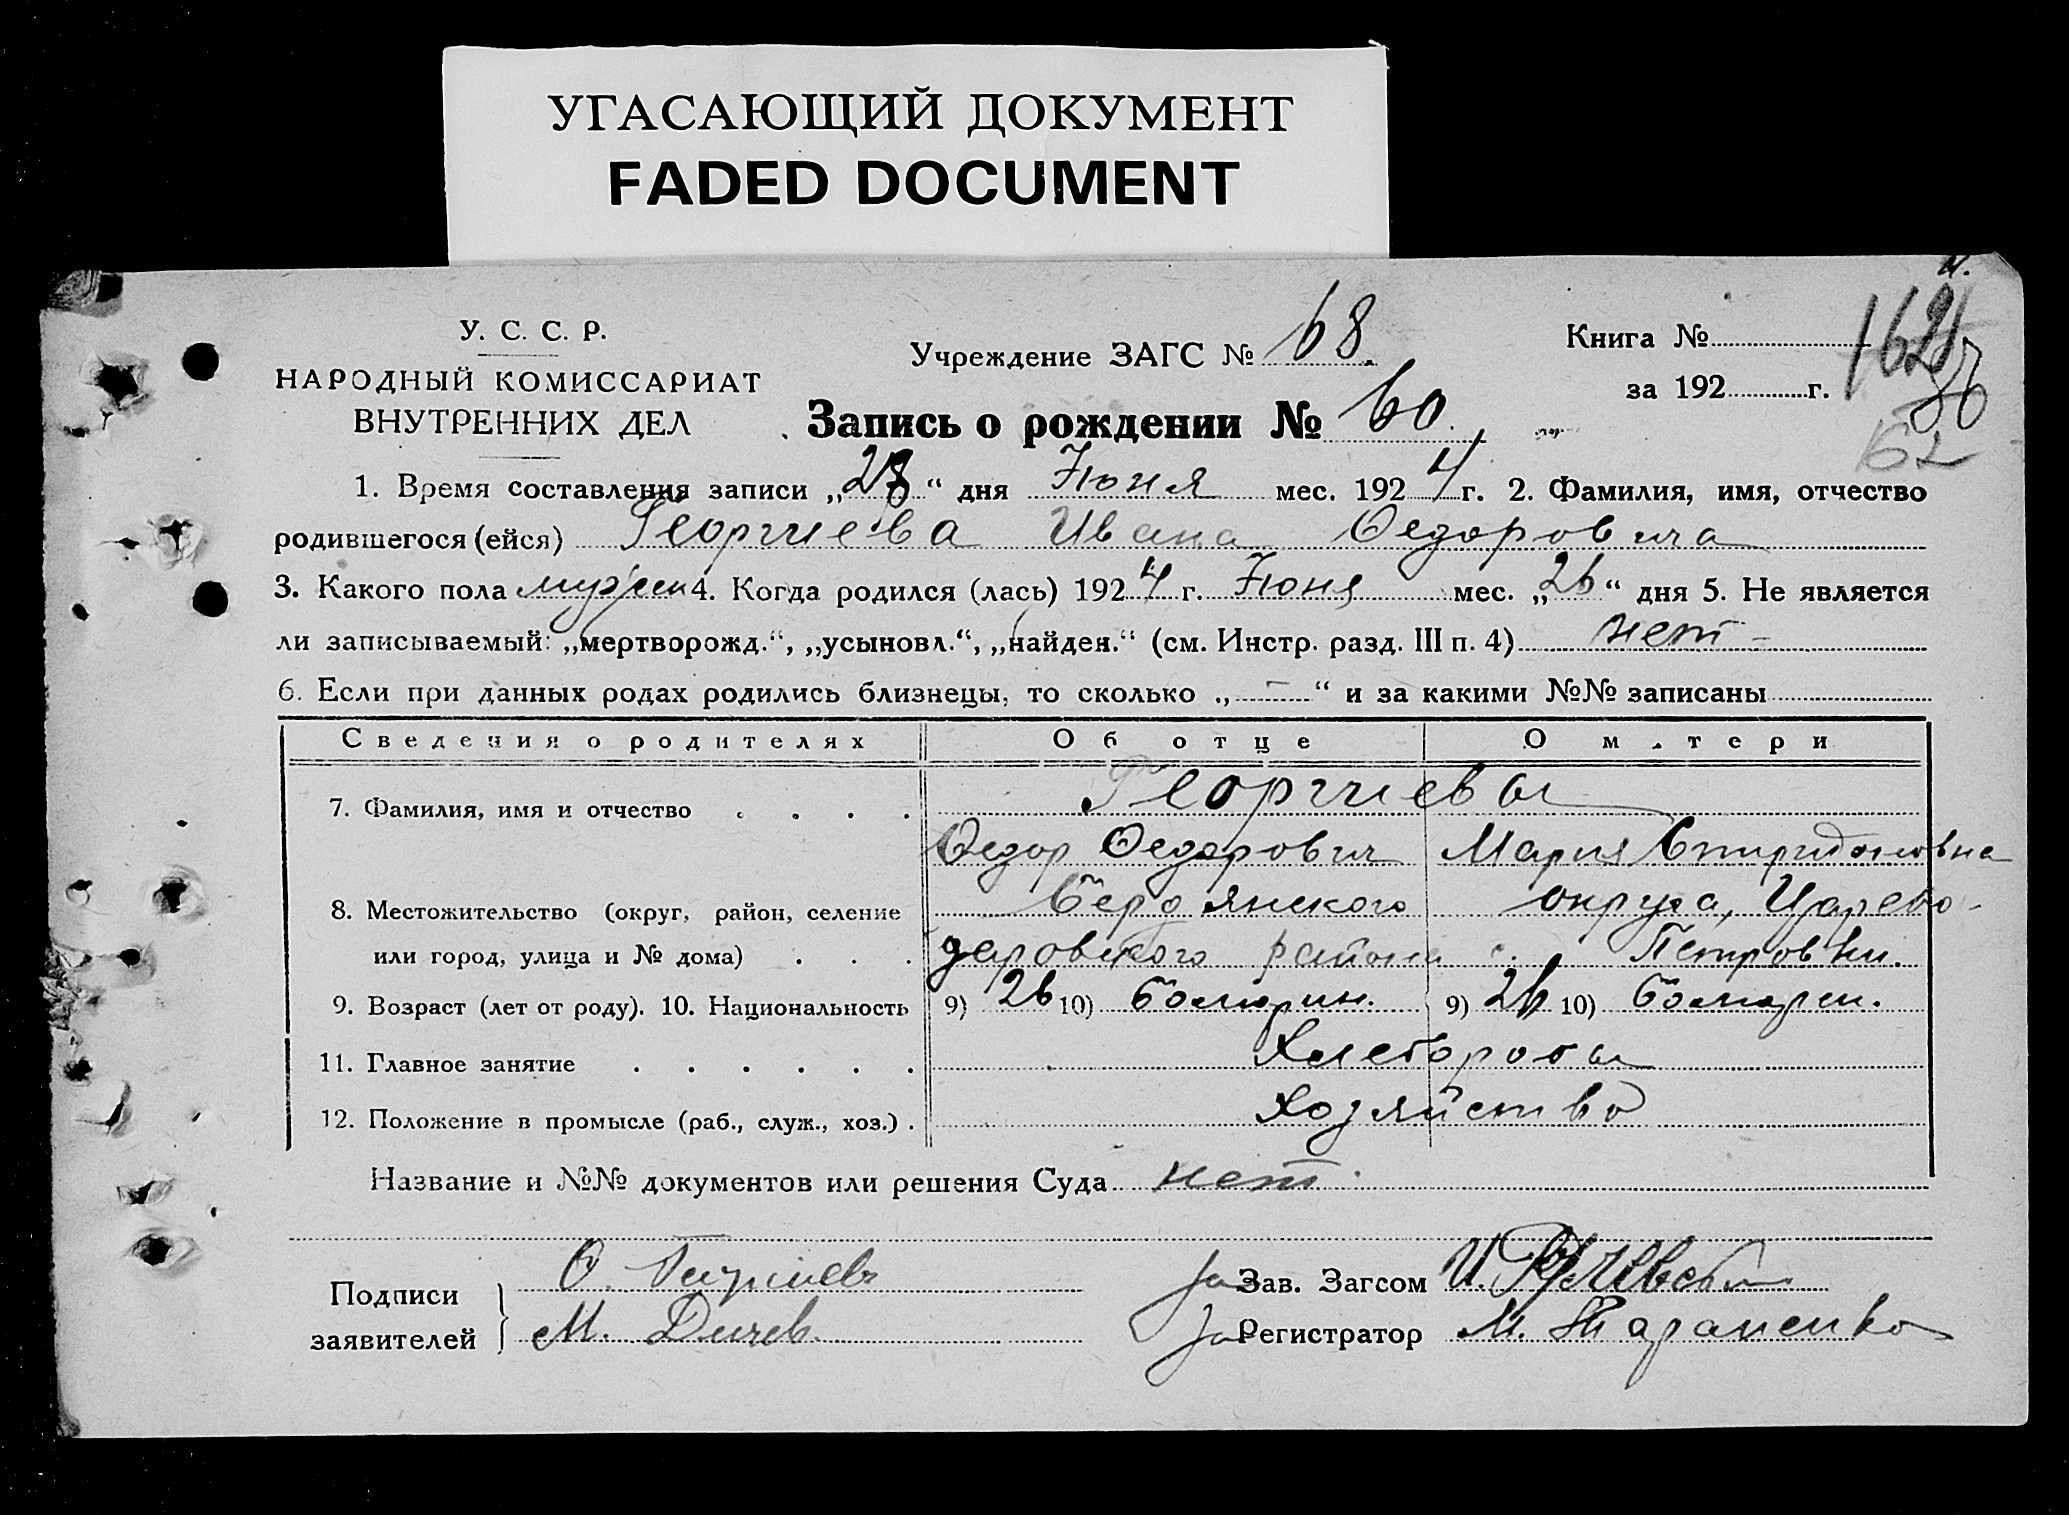 УГАСАЮЩИЙ ДОКУМЕНТ
FADED DOCUMENT
У. С. С. Р.
НАРОДНЫЙ КОМИССАРИАТ
ВНУТРЕННИХ ДЕЛ
Учреждение ЗАГС № 68
Книга №
за 192 г.
162
86
62
Запись о рождении № 60
1. Время составления записи „28“ дня Июня мес. 1924 г. 2. Фамилия, имя, отчество
родившегося (ейся) Георгиева Ивана Федоровича
3. Какого пола мужск 4. Когда родился (лась) 1924 г. Июня мес. „26“ дня 5. Не является
ли записываемый: „мертворожд.“, „усыновл.“, „найден.“ (см. Инстр. разд. III п. 4) нет -
6. Если при данных родах родились близнецы, то сколько „-“ и за какими №№ записаны
Сведения о родителях Об отце О матери
7. Фамилия, имя и отчество Георгиевы
Федор Федорович Мария Спиридоновна
8. Местожительство (округ, район, селение Бердянского округа, Царево-
или город, улица и № дома) даровского района с. Петровки.
9. Возраст (лет от роду). 10. Национальность 9) 26 10) Болгарин. 9) 26 10) Болгарск.
11. Главное занятие Хлеборобы
12. Положение в промысле (раб., служ., хоз.) Хозяйство
Название и №№ документов или решения Суда нет.
Подписи
заявителей
Ф. Георгиев
М. Дичев.
За Зав. Загсом И.
За Регистратор М. Тараненко